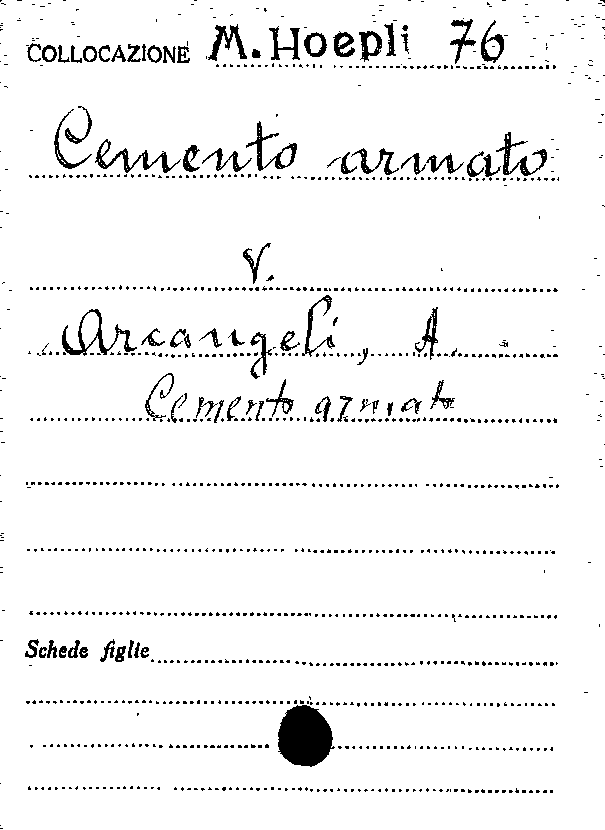 COLLOCAZIONE M. Hoepli 76
Cemento armato
V.
Arcangeli, A.
Cemento armato
Schede figlie